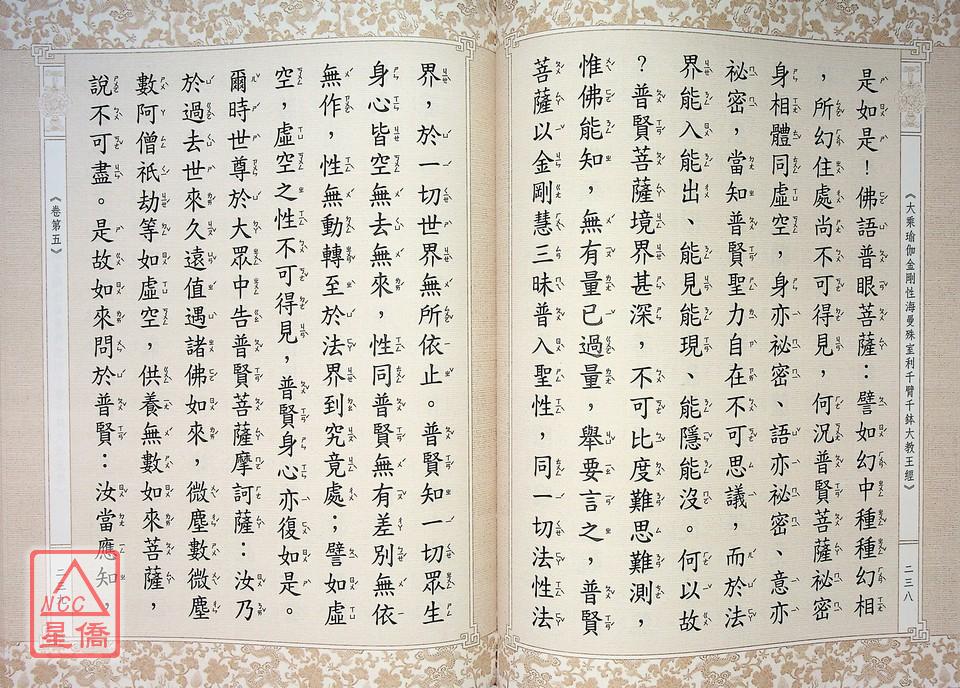 《大乘瑜伽金剛性海曼殊室利千臂千鉢大教王經》
二三八
是如是！佛語普眼菩薩：譬如幻中種種幻相
，所幻住處尚不可得見，何況普賢菩薩祕密
身相體同虛空，身亦祕密、語亦祕密、意亦
祕密，當知普賢聖力自在不可思議，而於法
界能入能出、能見能現、能隱能沒。何以故
？普賢菩薩境界甚深，不可比度難思難測，
惟佛能知，無有量已過量，舉要言之，普賢
菩薩以金剛慧三昧普入聖性，同一切法性法
界，於一切世界無所依止。普賢知一切眾生
身心皆空無去無來，性同普賢無有差別無依
無作，性無動轉至於法界到究竟處；譬如虛
空，虛空之性不可得見，普賢身心亦復如是。
爾時世尊於大眾中告普賢菩薩摩訶薩：汝乃
於過去世來久遠值遇諸佛如來，微塵數微塵
數阿僧祇劫等如虛空，供養無數如來菩薩，
說不可盡。是故如來問於普賢：汝當應知，
《卷第五》
NCC
星僑